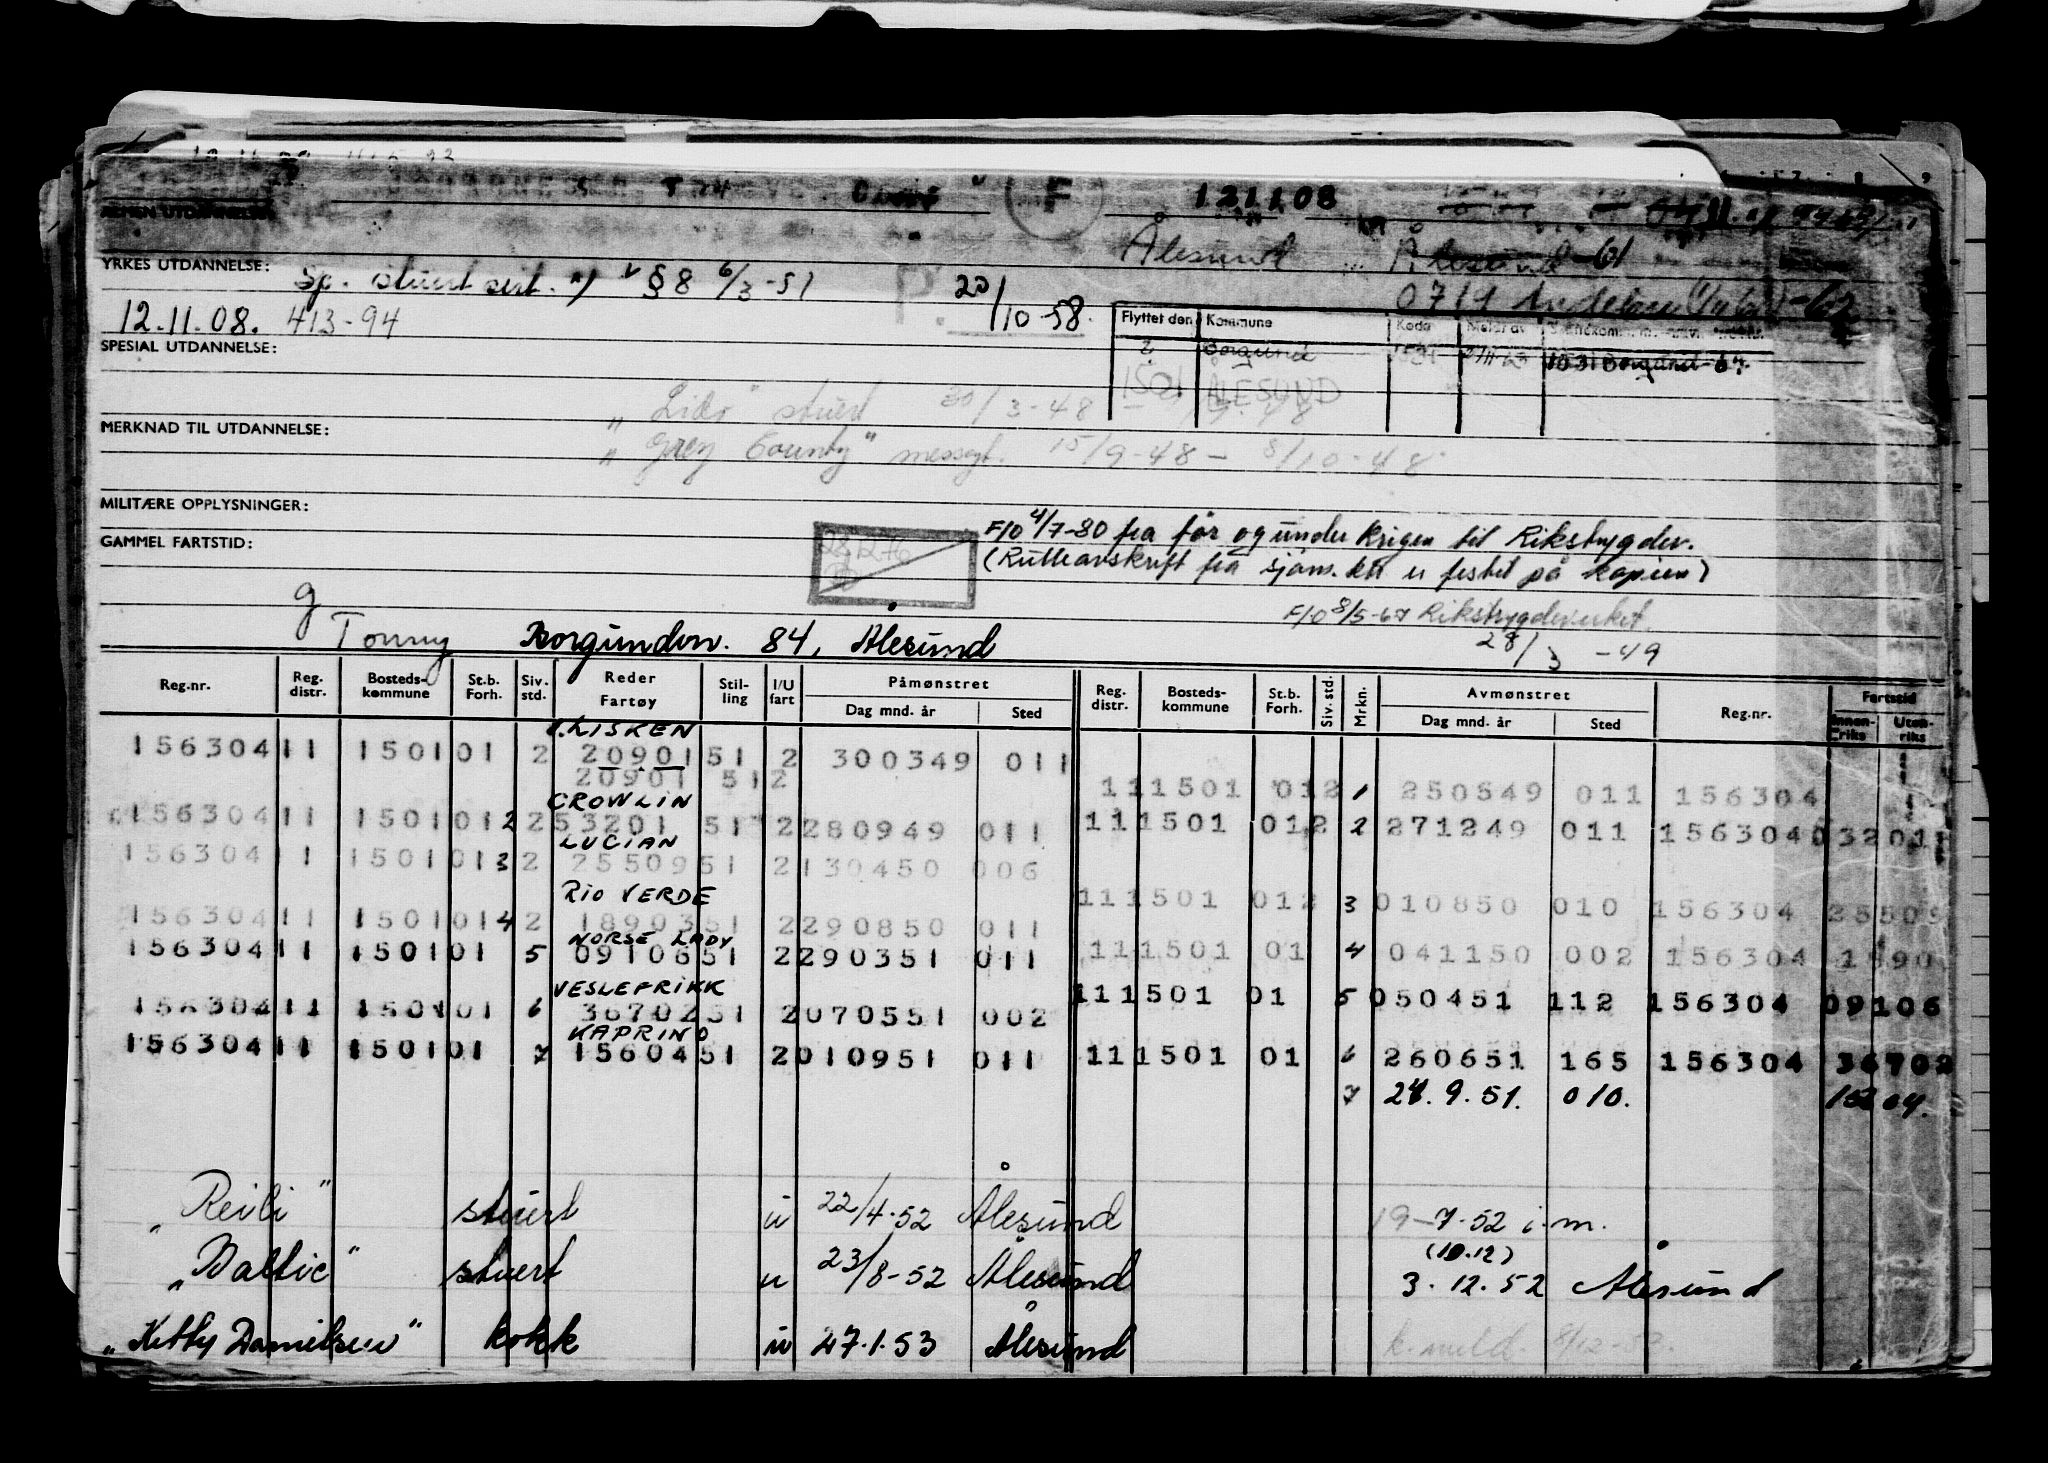 F 121108
ALMEN UTDANNELSE:
Ålesund
YRKES UTDANNELSE: Sp. stuert sert. §8 6/3-51 20/10-58.
12.11.08. 413-94
Flyttet den Kommune Kode
2 Borgund 1531 1531 Borgund-64
1501 ÅLESUND
SPESIAL UTDANNELSE:
"Lido" stuert 30/3-48 -
MERKNAD TIL UTDANNELSE:
"Grey County" messegt. 15/9-48 - 8/10-48.
MILITÆRE OPPLYSNINGER:
F/O 4/7-80 fra før og under krigen til Rikstrygdev.
GAMMEL FARTSTID:
28 12 76
(Rulleavskrift fra sjøm.ktr er festet på kopien)
F/O 8/5-67 Rikstrygdeverket.
g
Tonny Borgundvn. 84, Ålesund 28/3 -49
Reg.nr. Reg. distr. Bosteds-kommune St.b. Forh. Siv. std. Reder Fartøy Stil-ling I/U fart Påmønstret Dag mnd. år Sted Reg. distr. Bosteds-kommune St.b. Forh. Siv. std. Mrkn. Avmønstret Dag mnd. år Sted Reg.nr. Fartstid Innen-riks Uten-riks
LISKEN
156304 11 1501 01 2 20901 51 2 300349 011
20901 51 2
111501 012 1 250549 011 156304
CROWLIN
156304 11 1501 01 2 2 53201 51 2 280949 011 111501 012 2 271249 011 156304 0 3201
LUCIAN
156304 11 1501 01 3 2 25509 51 2 130450 006
RIO VERDE
111501 012 3 010850 010 156304 25509
156304 11 1501 01 4 2 18903 51 2 290850 011
NORSE LADY
156304 11 1501 01 5 09106 51 2 290351 011 111501 01 4 041150 002 156304 1890
VESLEFRIKK
111501 01 5 050451 112 156304 09106
156304 11 1501 01 6 36702 51 2 070551 002
KAPRINO
156304 11 1501 01 7 15604 51 2 010951 011 111501 01 6 260651 165 156304 36702
7 24.9.51. 010.
"Reili" stuert u 22/4-52 Ålesund 19-7-52 i.m.
(10.12)
"Baltic" stuert u 23/8-52 Ålesund 3.12.52 Ålesund
"Kitty Danielsen" kokk u 27.1.53 Ålesund k. meld. 8/12-53.